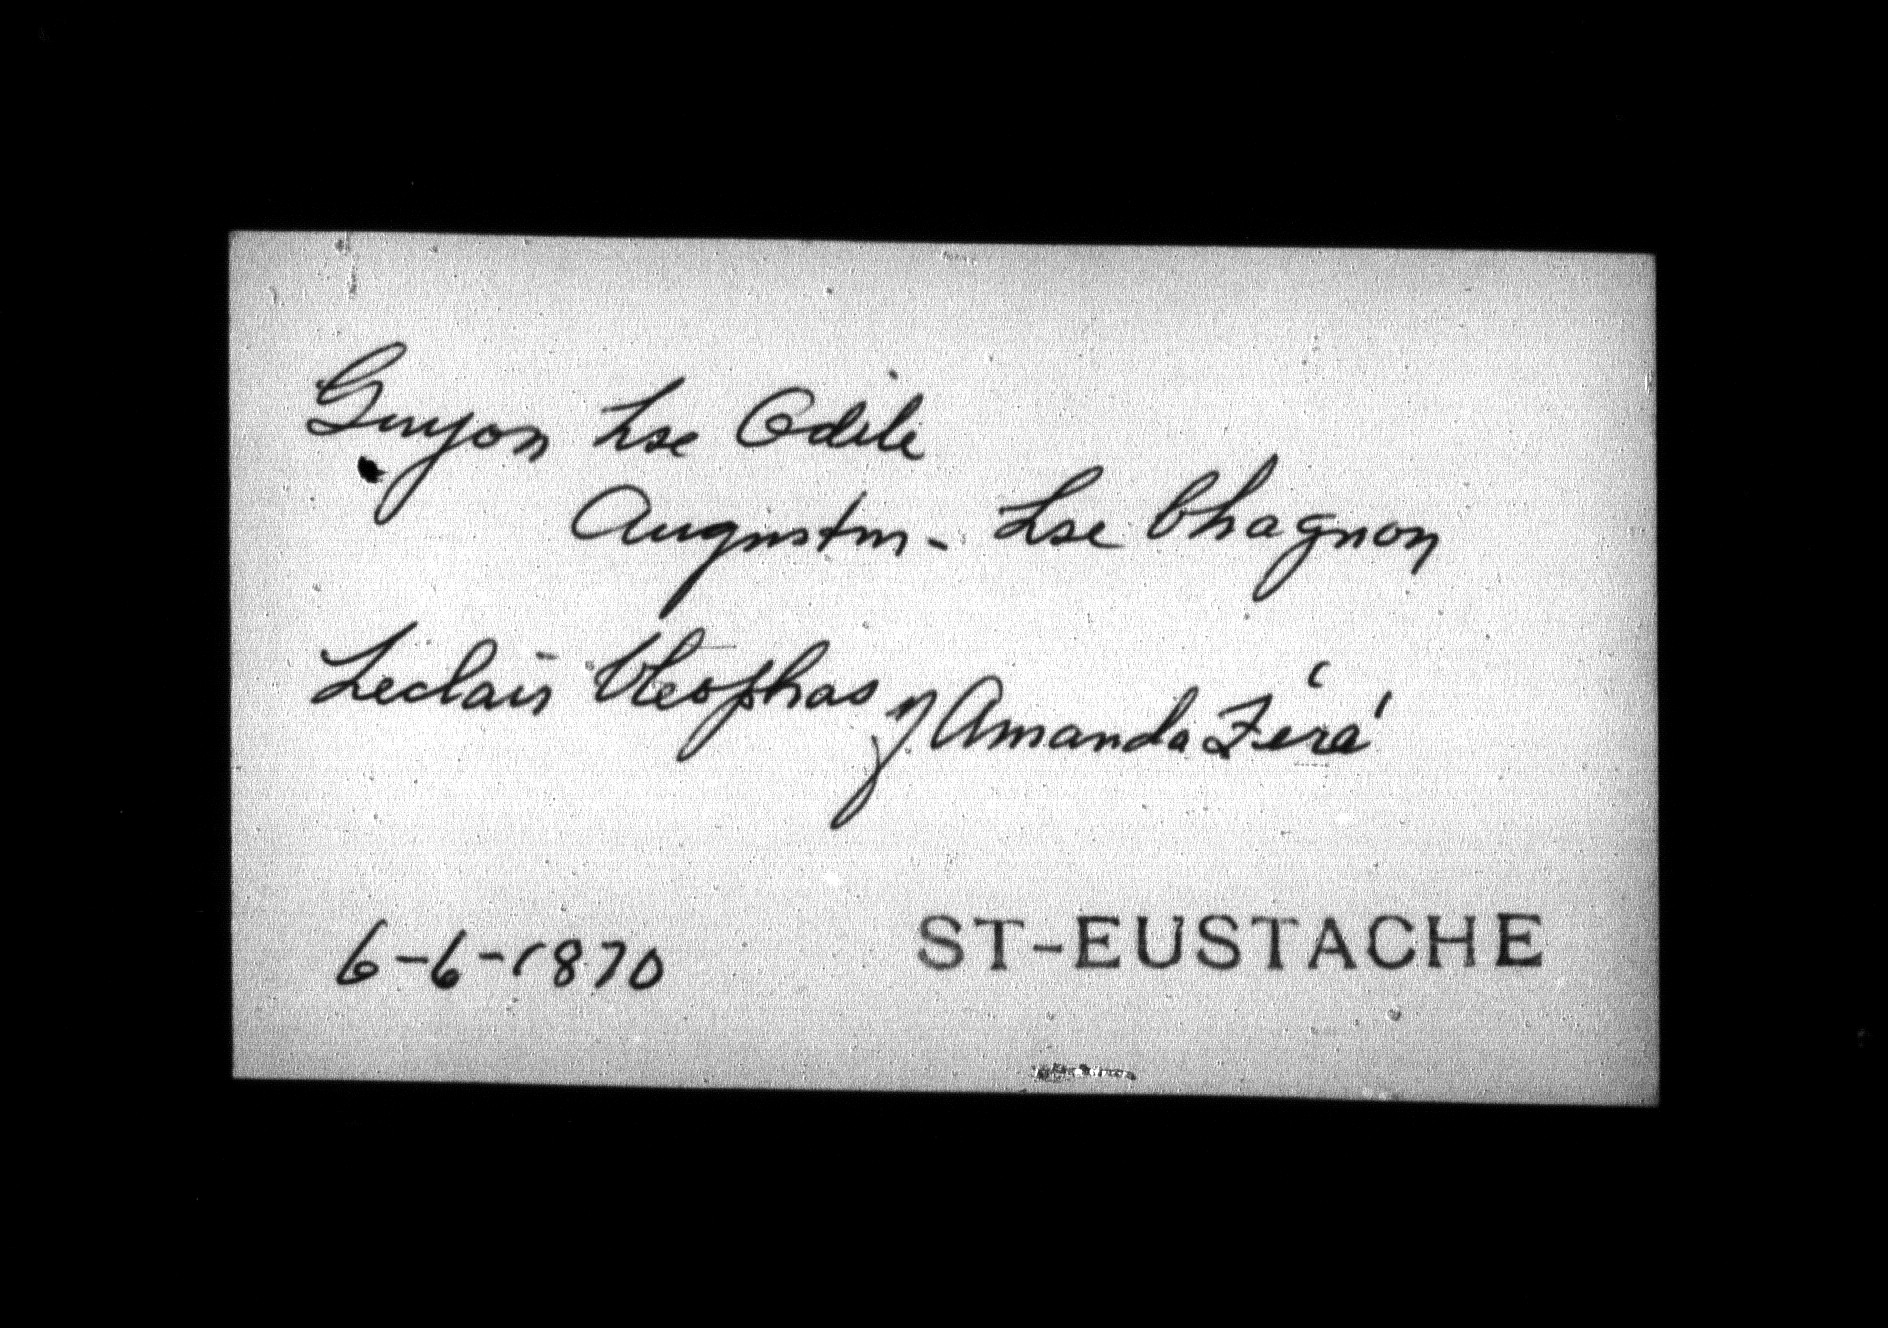 Guyon Lse Odile
Augustin - Lse Chagnon
Leclair Cléophas v Amanda Féré
6-6-1870
ST-EUSTACHE